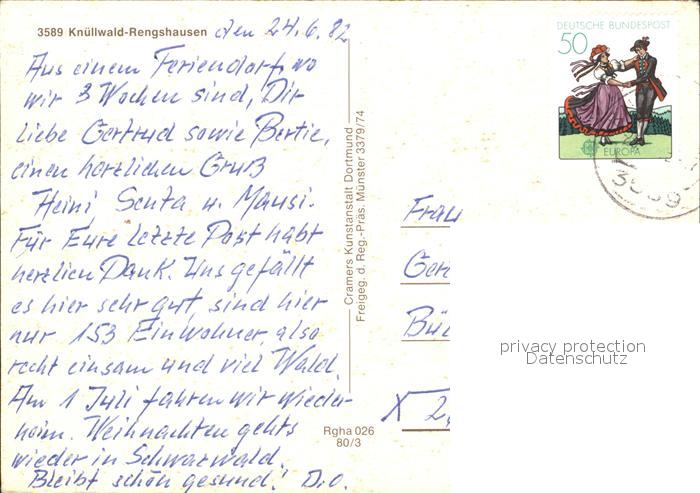 3589 Knüllwald-Rengshausen den 24.6.82
Aus einem Feriendorf, wo
wir 3 Wochen sind, Dir
liebe Gertrud sowie Bertie,
einen herzlichen Gruß
Heini, Senta u. Mausi.
Für Eure letzte Post habt
herzlichen Dank. Uns gefällt
es hier sehr gut, sind hier
nur 153 Einwohner, also
recht einsam und viel Wald.
Am 1 Juli fahren wir wieder
heim. Weihnachten gehts
wieder in Schwarzwald.
Bleibt schön gesund! D.O.
Cramers Kunstanstalt Dortmund
Freigeg. d. Reg.-Präs. Münster 3379/74
Rgha 026
80/3
DEUTSCHE BUNDESPOST
50
EUROPA
3589
Frau
Ger
Bü
X 2,
privacy protection
Datenschutz